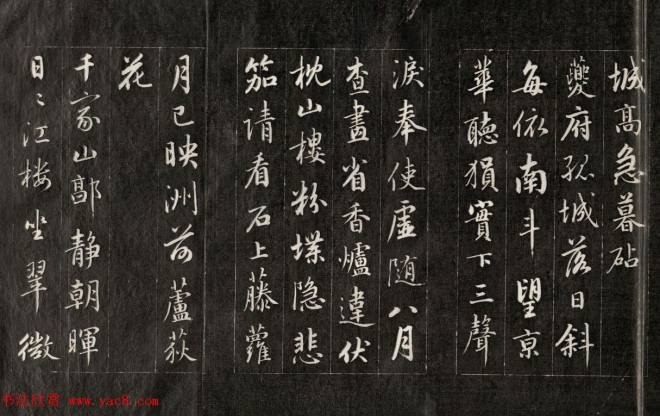 城高急暮砧
夔府孤城落日斜
每依南斗望京
華聽猿實下三聲
淚奉使虛隨八月
查畫省香爐違伏
枕山樓粉堞隐悲
笳請看石上藤蘿
月已映洲前蘆荻
花
千家山郭静朝暉
日〻江楼坐翠微
书法欣赏 www.yac8.com